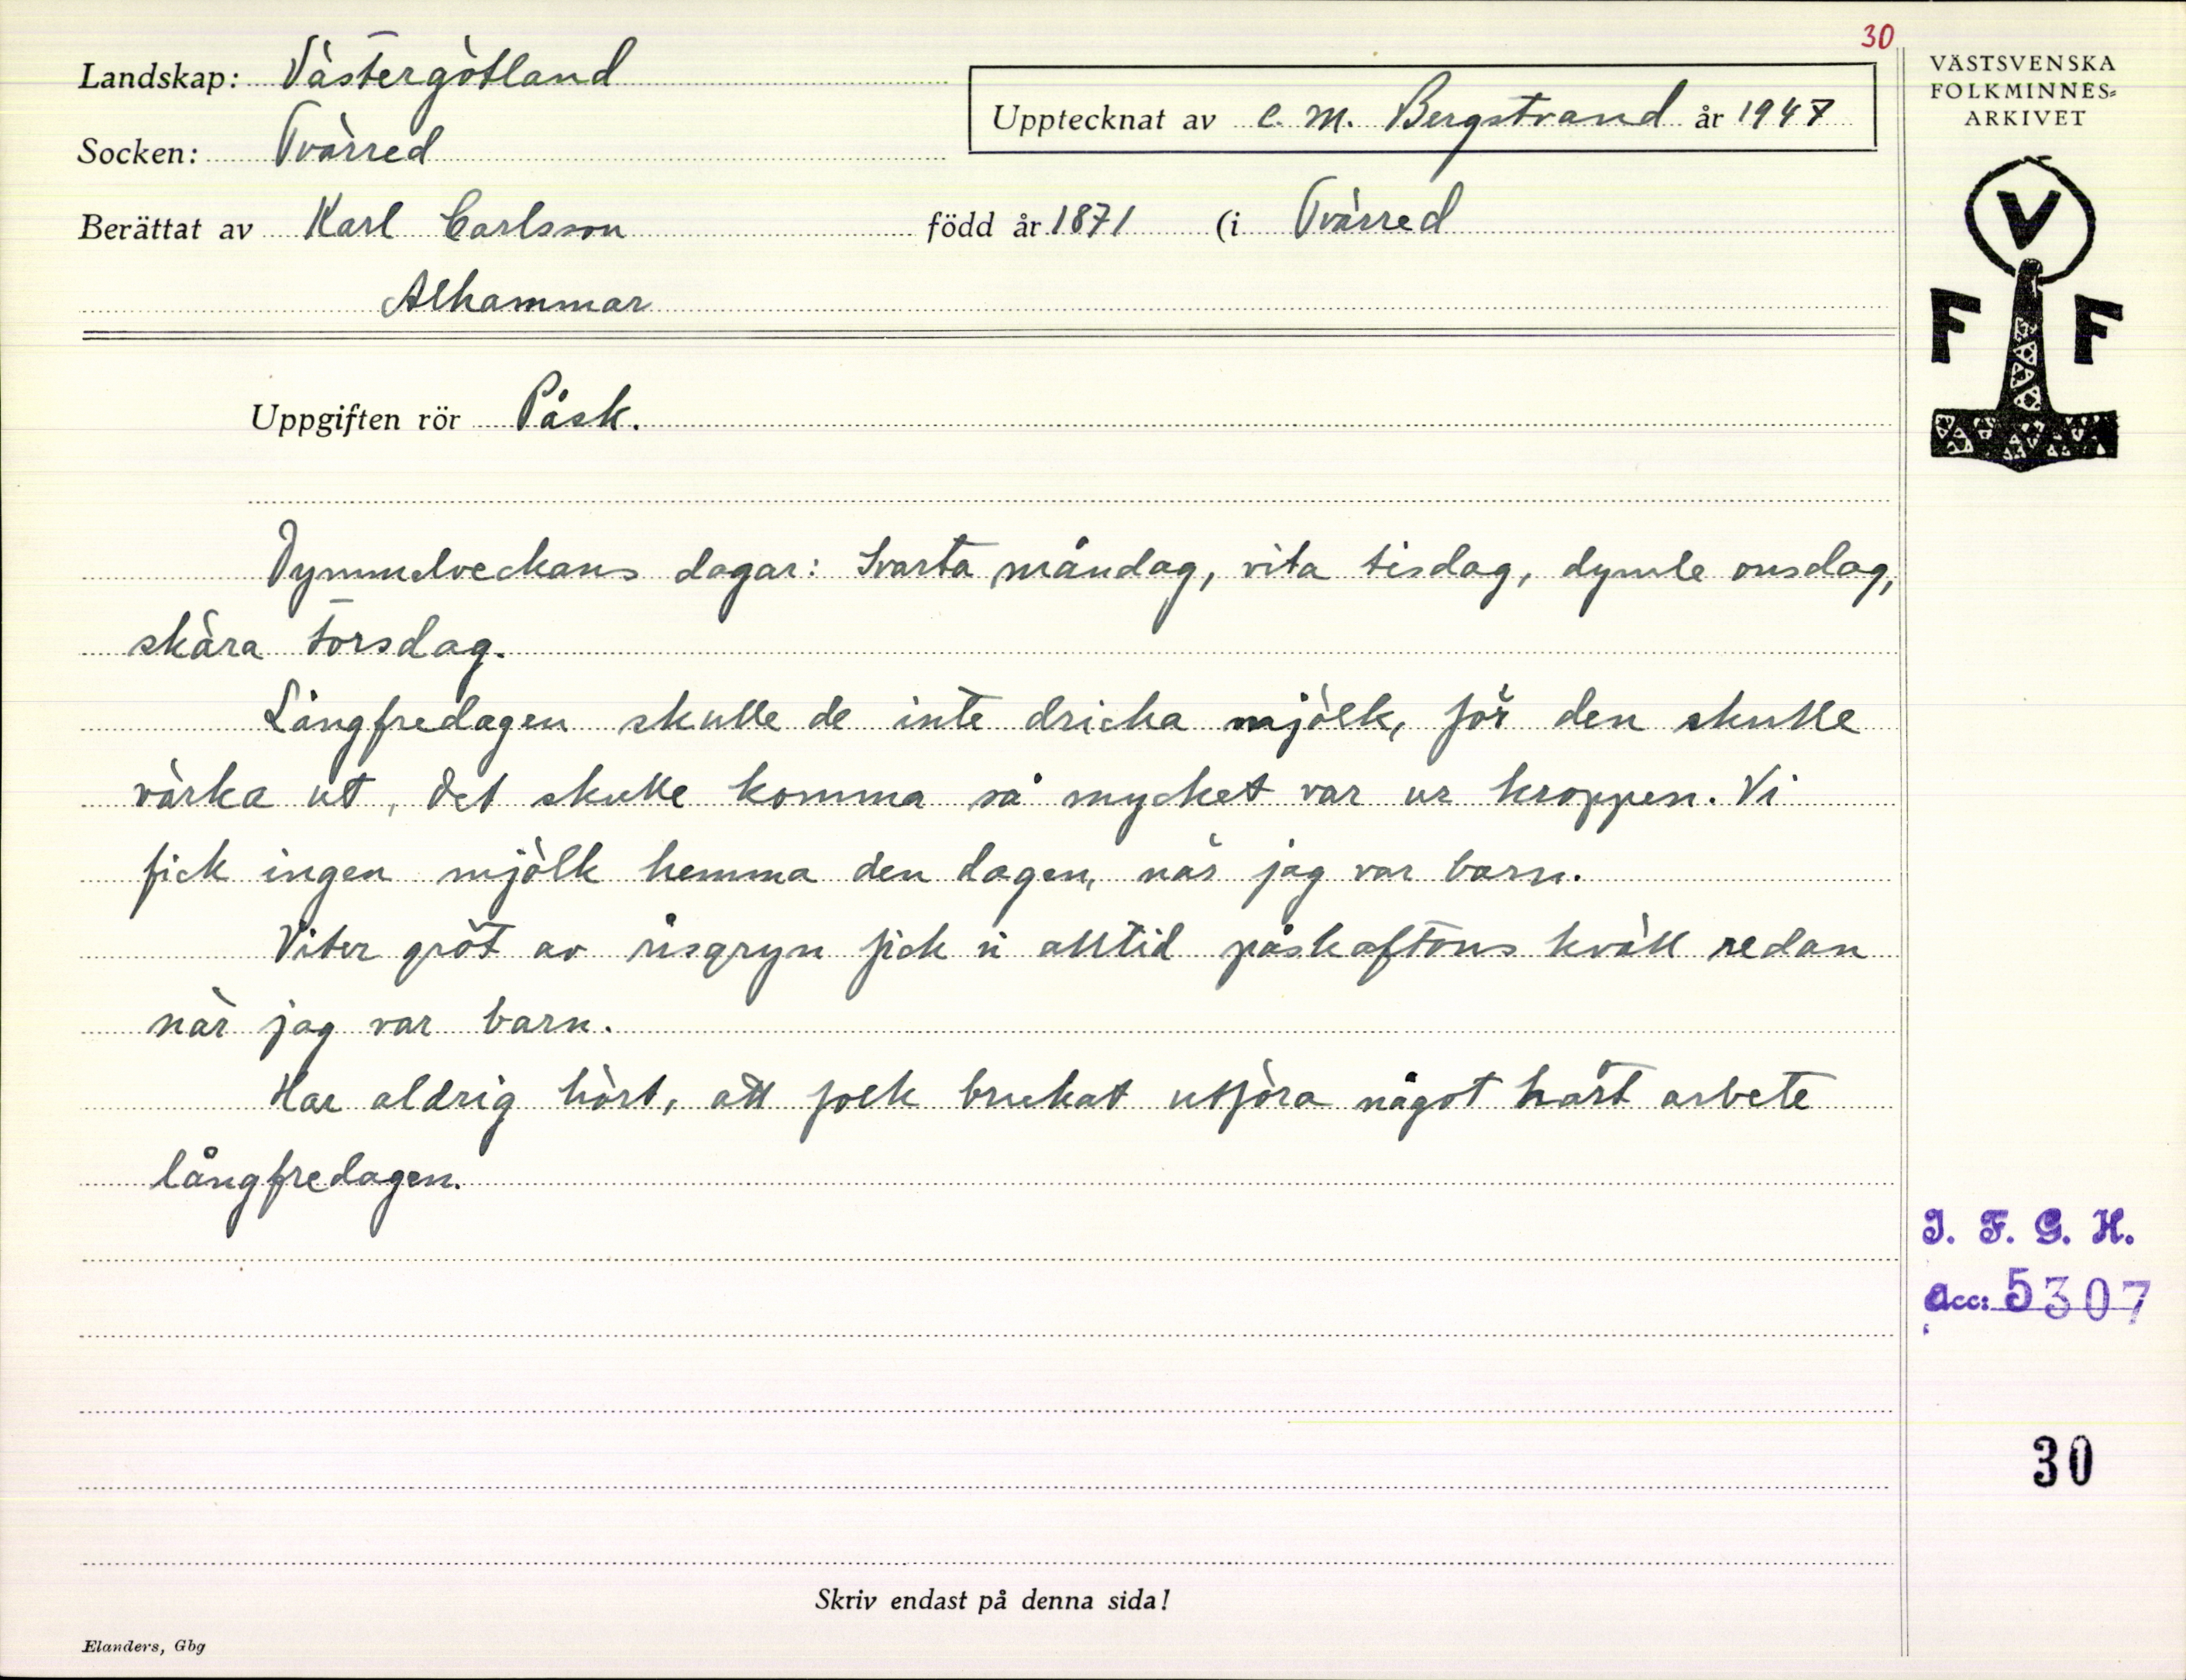 30
Landskap: Västergötland
Upptecknat av C. M. Bergstrand år 1947
Socken: Tvärred
Berättat av Karl Carlsson född år 1871 (i Tvärred
Alhammar
Uppgiften rör Påsk.
Dymmelveckans dagar: Svarta måndag, vita tisdag, dymle onsdag,
skära torsdag.
Långfredagen skulle de inte dricka mjölk, för den skulle
värka ut, det skulle komma så mycket var ur kroppen. Vi
fick ingen mjölk hemma den dagen, när jag var barn.
Viter gröt av risgryn fick vi alltid påskaftons kväll redan
när jag var barn.
Har aldrig hört, att folk brukat utföra något hårt arbete
långfredagen.
Skriv endast på denna sida!
Elanders, Gbg
VÄSTSVENSKA
FOLKMINNES=
ARKIVET
V
F F
I. F. G. H.
Acc: 5307
30